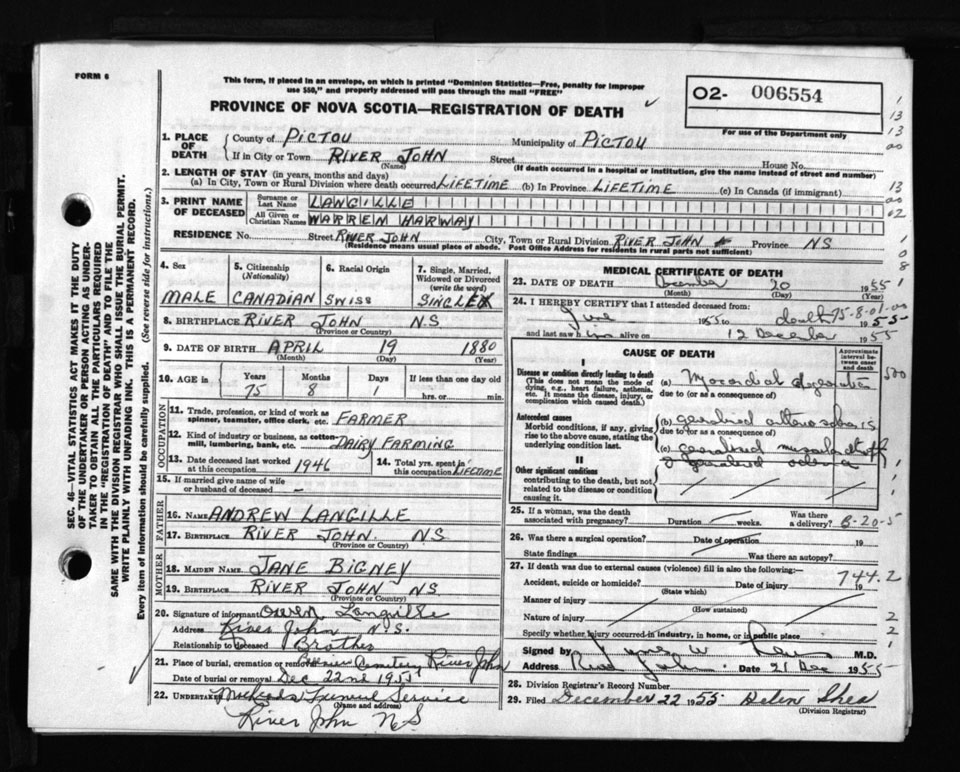 FORM 6
This form, if placed in an envelope, on which is printed "Dominion Statistics—Free, penalty for improper
use $50," and properly addressed will pass through the mail "FREE"
PROVINCE OF NOVA SCOTIA—REGISTRATION OF DEATH
O2- 006554
For use of the Department only
1. PLACE OF DEATH
County of PICTOU Municipality of PICTOU
If in City or Town RIVER JOHN Street House No.
(Name) (If death occurred in a hospital or institution, give the name instead of street and number)
2. LENGTH OF STAY (in years, months and days)
(a) In City, Town or Rural Division where death occurred LIFETIME (b) In Province LIFETIME (c) In Canada (if immigrant)
3. PRINT NAME OF DECEASED
Surname or Last Name LANGILLE
All Given or Christian Names WARREN HARWAY
RESIDENCE No. Street RIVER JOHN City, Town or Rural Division RIVER JOHN Province NS
(Residence means usual place of abode. Post Office Address for residents in rural parts not sufficient)
4. Sex 5. Citizenship (Nationality) 6. Racial Origin 7. Single, Married, Widowed or Divorced (write the word)
MALE CANADIAN SWISS SINGLE
8. BIRTHPLACE RIVER JOHN N.S
(Province or Country)
9. DATE OF BIRTH APRIL 19 1880
(Month) (Day) (Year)
10. AGE in Years Months Days If less than one day old
75 8 1 hrs. or min.
OCCUPATION
11. Trade, profession, or kind of work as spinner, teamster, office clerk, etc. FARMER
12. Kind of industry or business, as cotton-mill, lumbering, bank, etc. DAIRY FARMING
13. Date deceased last worked at this occupation 1946 14. Total yrs. spent in this occupation LIFETIME
15. If married give name of wife or husband of deceased —
FATHER
16. NAME ANDREW LANGILLE
17. BIRTHPLACE RIVER JOHN. N.S
(Province or Country)
MOTHER
18. MAIDEN NAME JANE BIGNEY
19. BIRTHPLACE RIVER JOHN NS
(Province or Country)
20. Signature of informant Owen Langille
Address River John N.S.
Relationship to deceased Brother
21. Place of burial, cremation or removal Cemetery River John
Date of burial or removal Dec 22nd 1955
22. Undertaker Funeral Service
(Name and address)
River John NS
MEDICAL CERTIFICATE OF DEATH
23. DATE OF DEATH December 20 1955
(Month) (Day) (Year)
24. I HEREBY CERTIFY that I attended deceased from:
June 1955 to death 1955
75-8-01-00
and last saw him alive on 12 December 1955
CAUSE OF DEATH
Approximate interval between cause and death
I
Disease or condition directly leading to death
(This does not mean the mode of dying, e.g., heart failure, asthenia, etc. It means the disease, injury, or complication which caused death.)
(a)
due to (or as a consequence of)
Antecedent causes
Morbid conditions, if any, giving rise to the above cause, stating the underlying condition last.
(b)
due to (or as a consequence of)
(c)
II
Other significant conditions
contributing to the death, but not related to the disease or condition causing it.
25. If a woman, was the death associated with pregnancy? Duration weeks. Was there a delivery? 8-20-5
26. Was there a surgical operation? Date of operation 19
State findings Was there an autopsy?
27. If death was due to external causes (violence) fill in also the following:—
744.2
Accident, suicide or homicide? Date of injury 19
(State which)
Manner of injury
(How sustained)
Nature of injury
Specify whether injury occurred in industry, in home, or in public place
Signed by M.D.
Address River John Date 21 Dec 1955
28. Division Registrar's Record Number
29. Filed December 22 1955 Shea
(Division Registrar)
SEC. 46—VITAL STATISTICS ACT MAKES IT THE DUTY
OF THE UNDERTAKER OR PERSON ACTING AS UNDER-
TAKER TO OBTAIN ALL THE PARTICULARS REQUIRED
IN THE "REGISTRATION OF DEATH" AND TO FILE THE
SAME WITH THE DIVISION REGISTRAR WHO SHALL ISSUE THE BURIAL PERMIT.
WRITE PLAINLY WITH UNFADING INK. THIS IS A PERMANENT RECORD.
Every item of information should be carefully supplied. (See reverse side for instructions.)